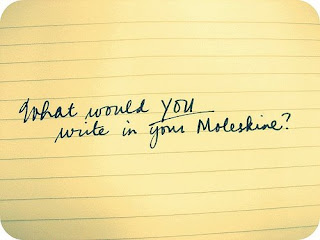 What would you
write in your Moleskine?